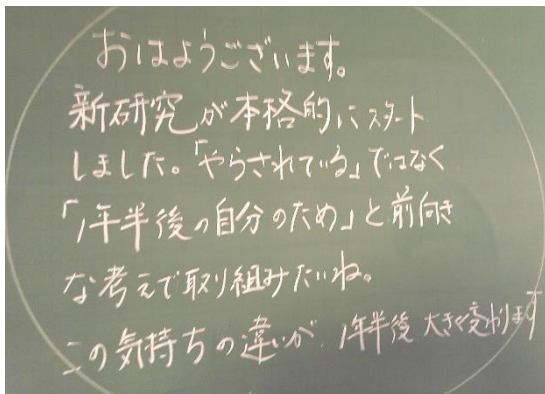 おはようございます。
新研究が本格的にスタート
しました。「やらされている」ではなく
「1年半後の自分のため」と前向き
な考えで取り組みたいね。
この気持ちの違いが、1年半後大きく変わります